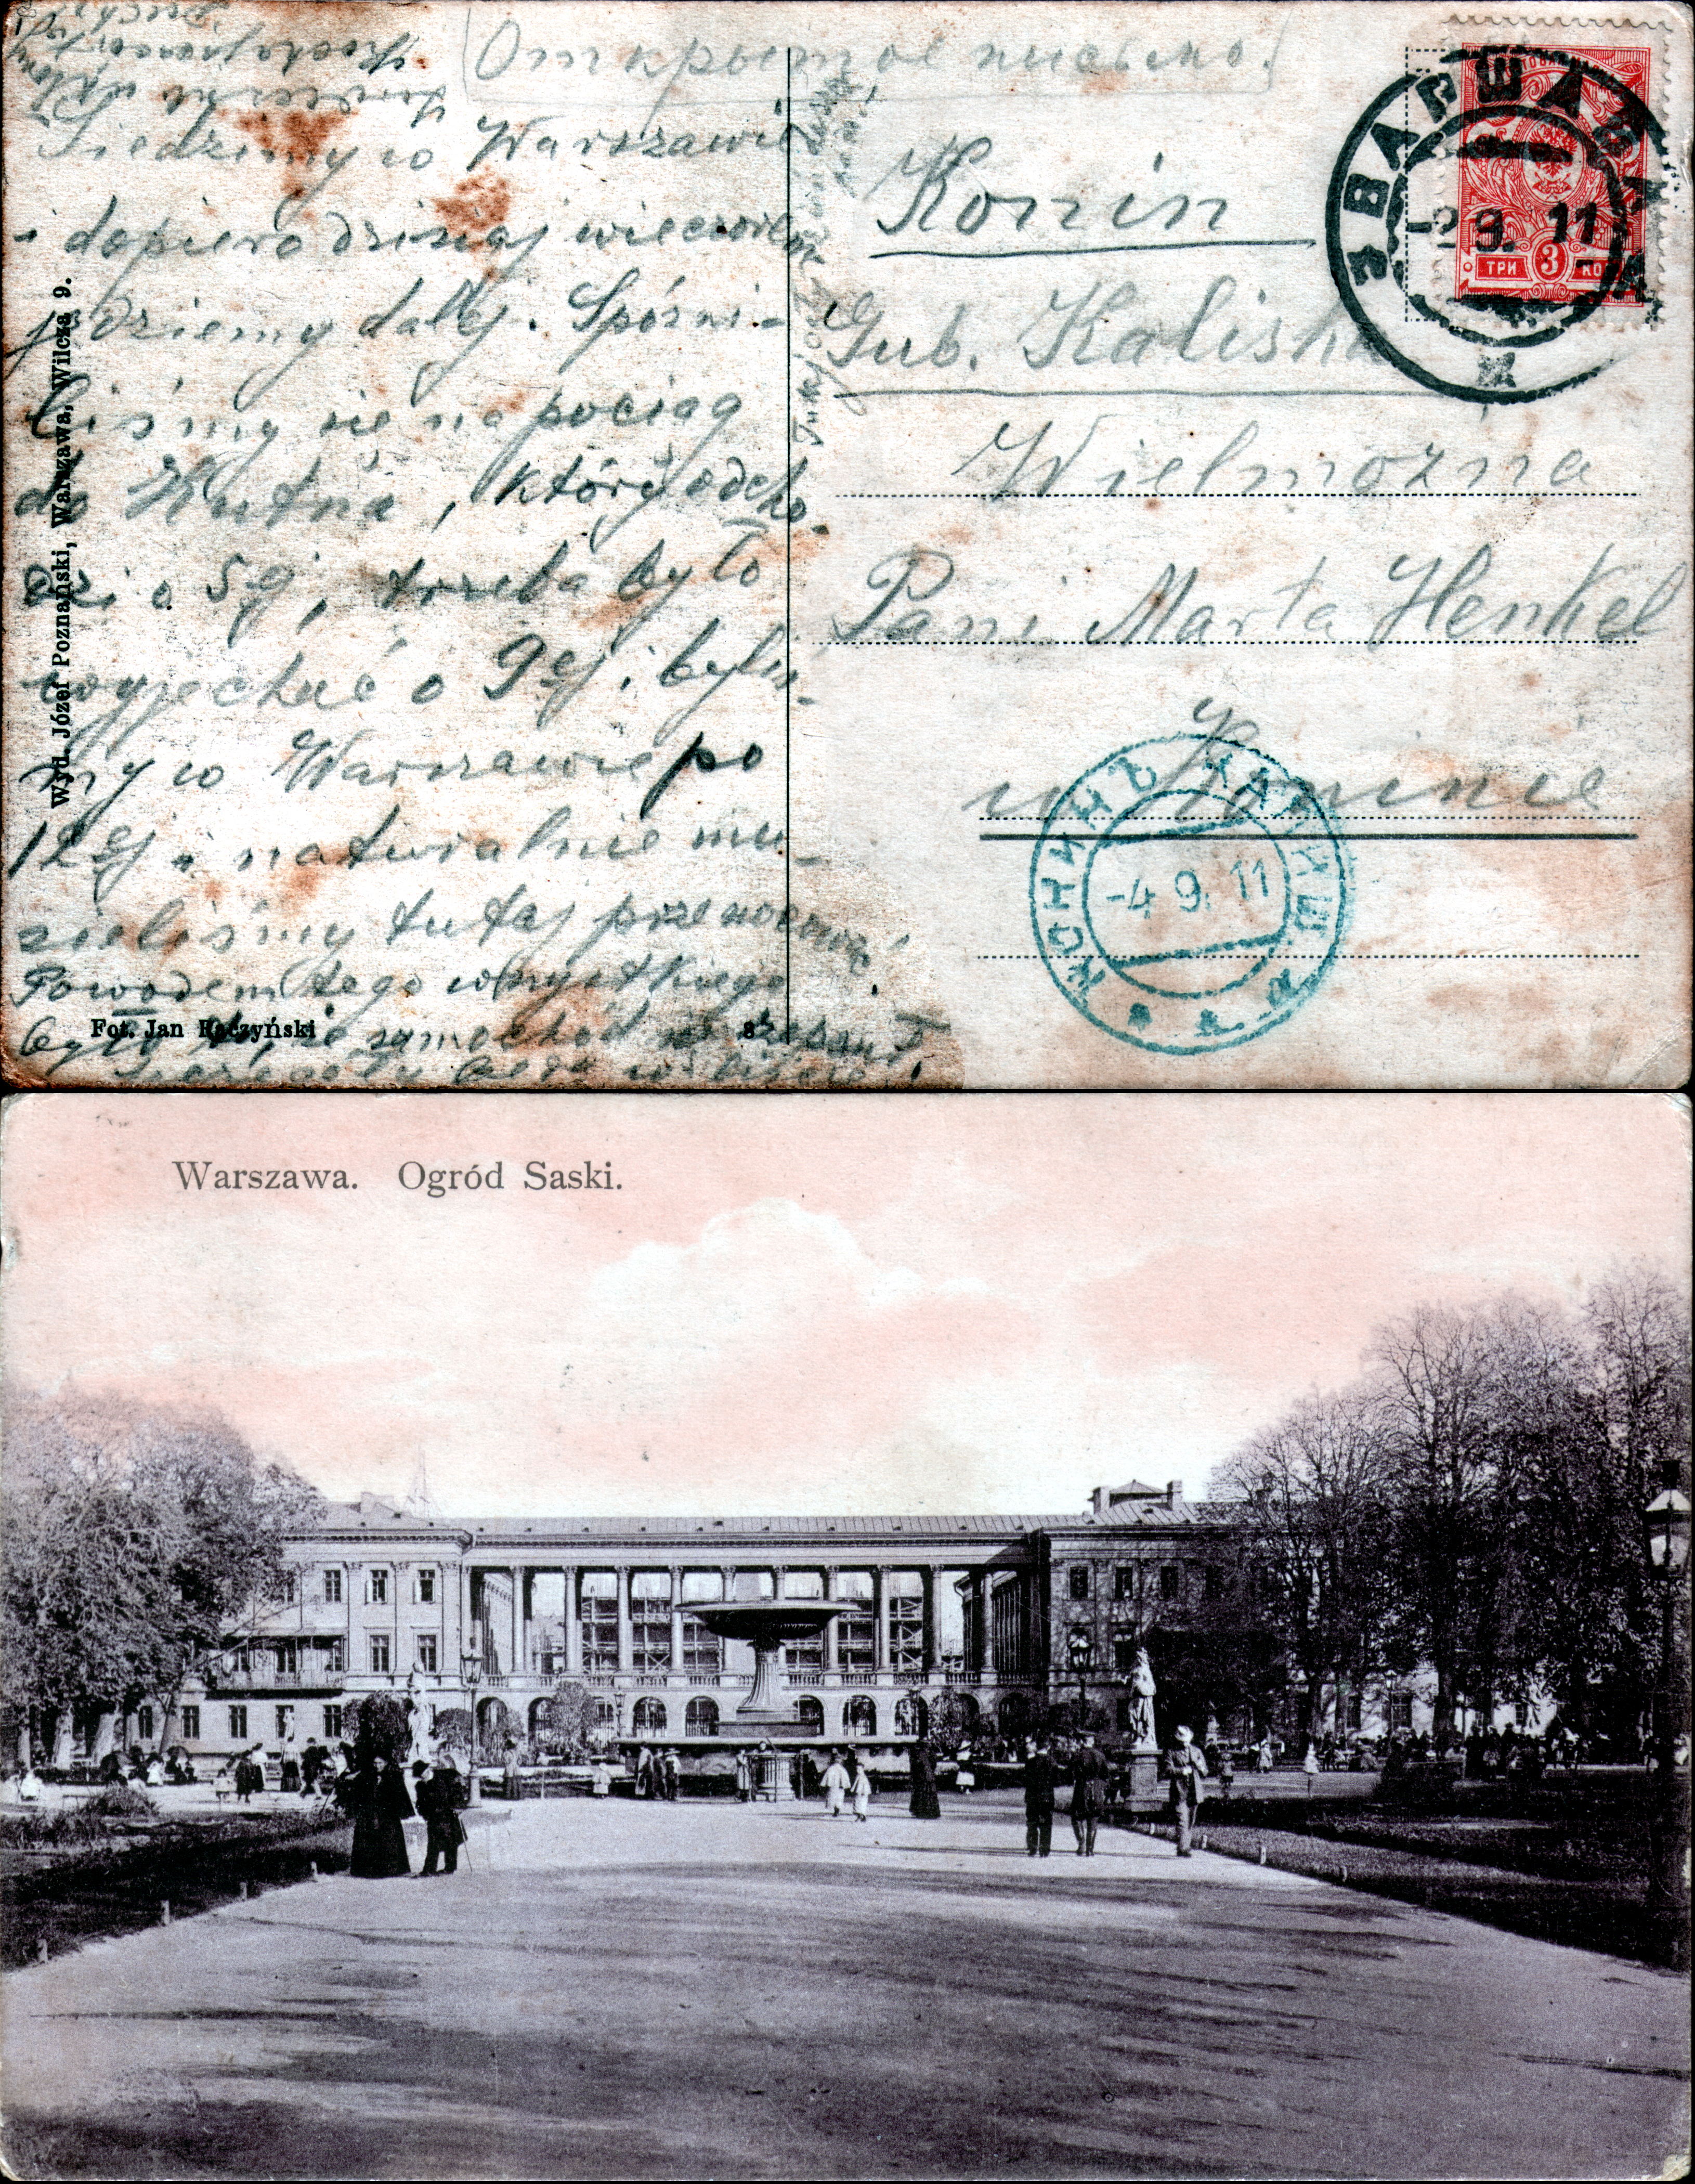 Открытое письмо.
Siedzimy w Warszawie
i dopiero dzisiaj wieczorem
jedziemy dalej. Spóźni-
liśmy się na pociąg
do Kutna, który odcho-
dzi o 5ej, trzeba było
wyjechać o 9ej i byliś-
my w Warszawie po
12ej i naturalnie mu-
sieliśmy tutaj przenocować.
Powodem tego wszystkiego
było to, że samochód
Wyd. Józef Poznański, Warszawa, Wilcza 9.
Fot. Jan Raczyński
Konin
Gub. Kaliska
Wielmożna
Pani Marta Henkel
w Koninie
ВАРШАВА
2 9. 11
ТРИ 3 КОП
КОНИНЪ КАЛИШ.
-4 9. 11
Warszawa. Ogród Saski.